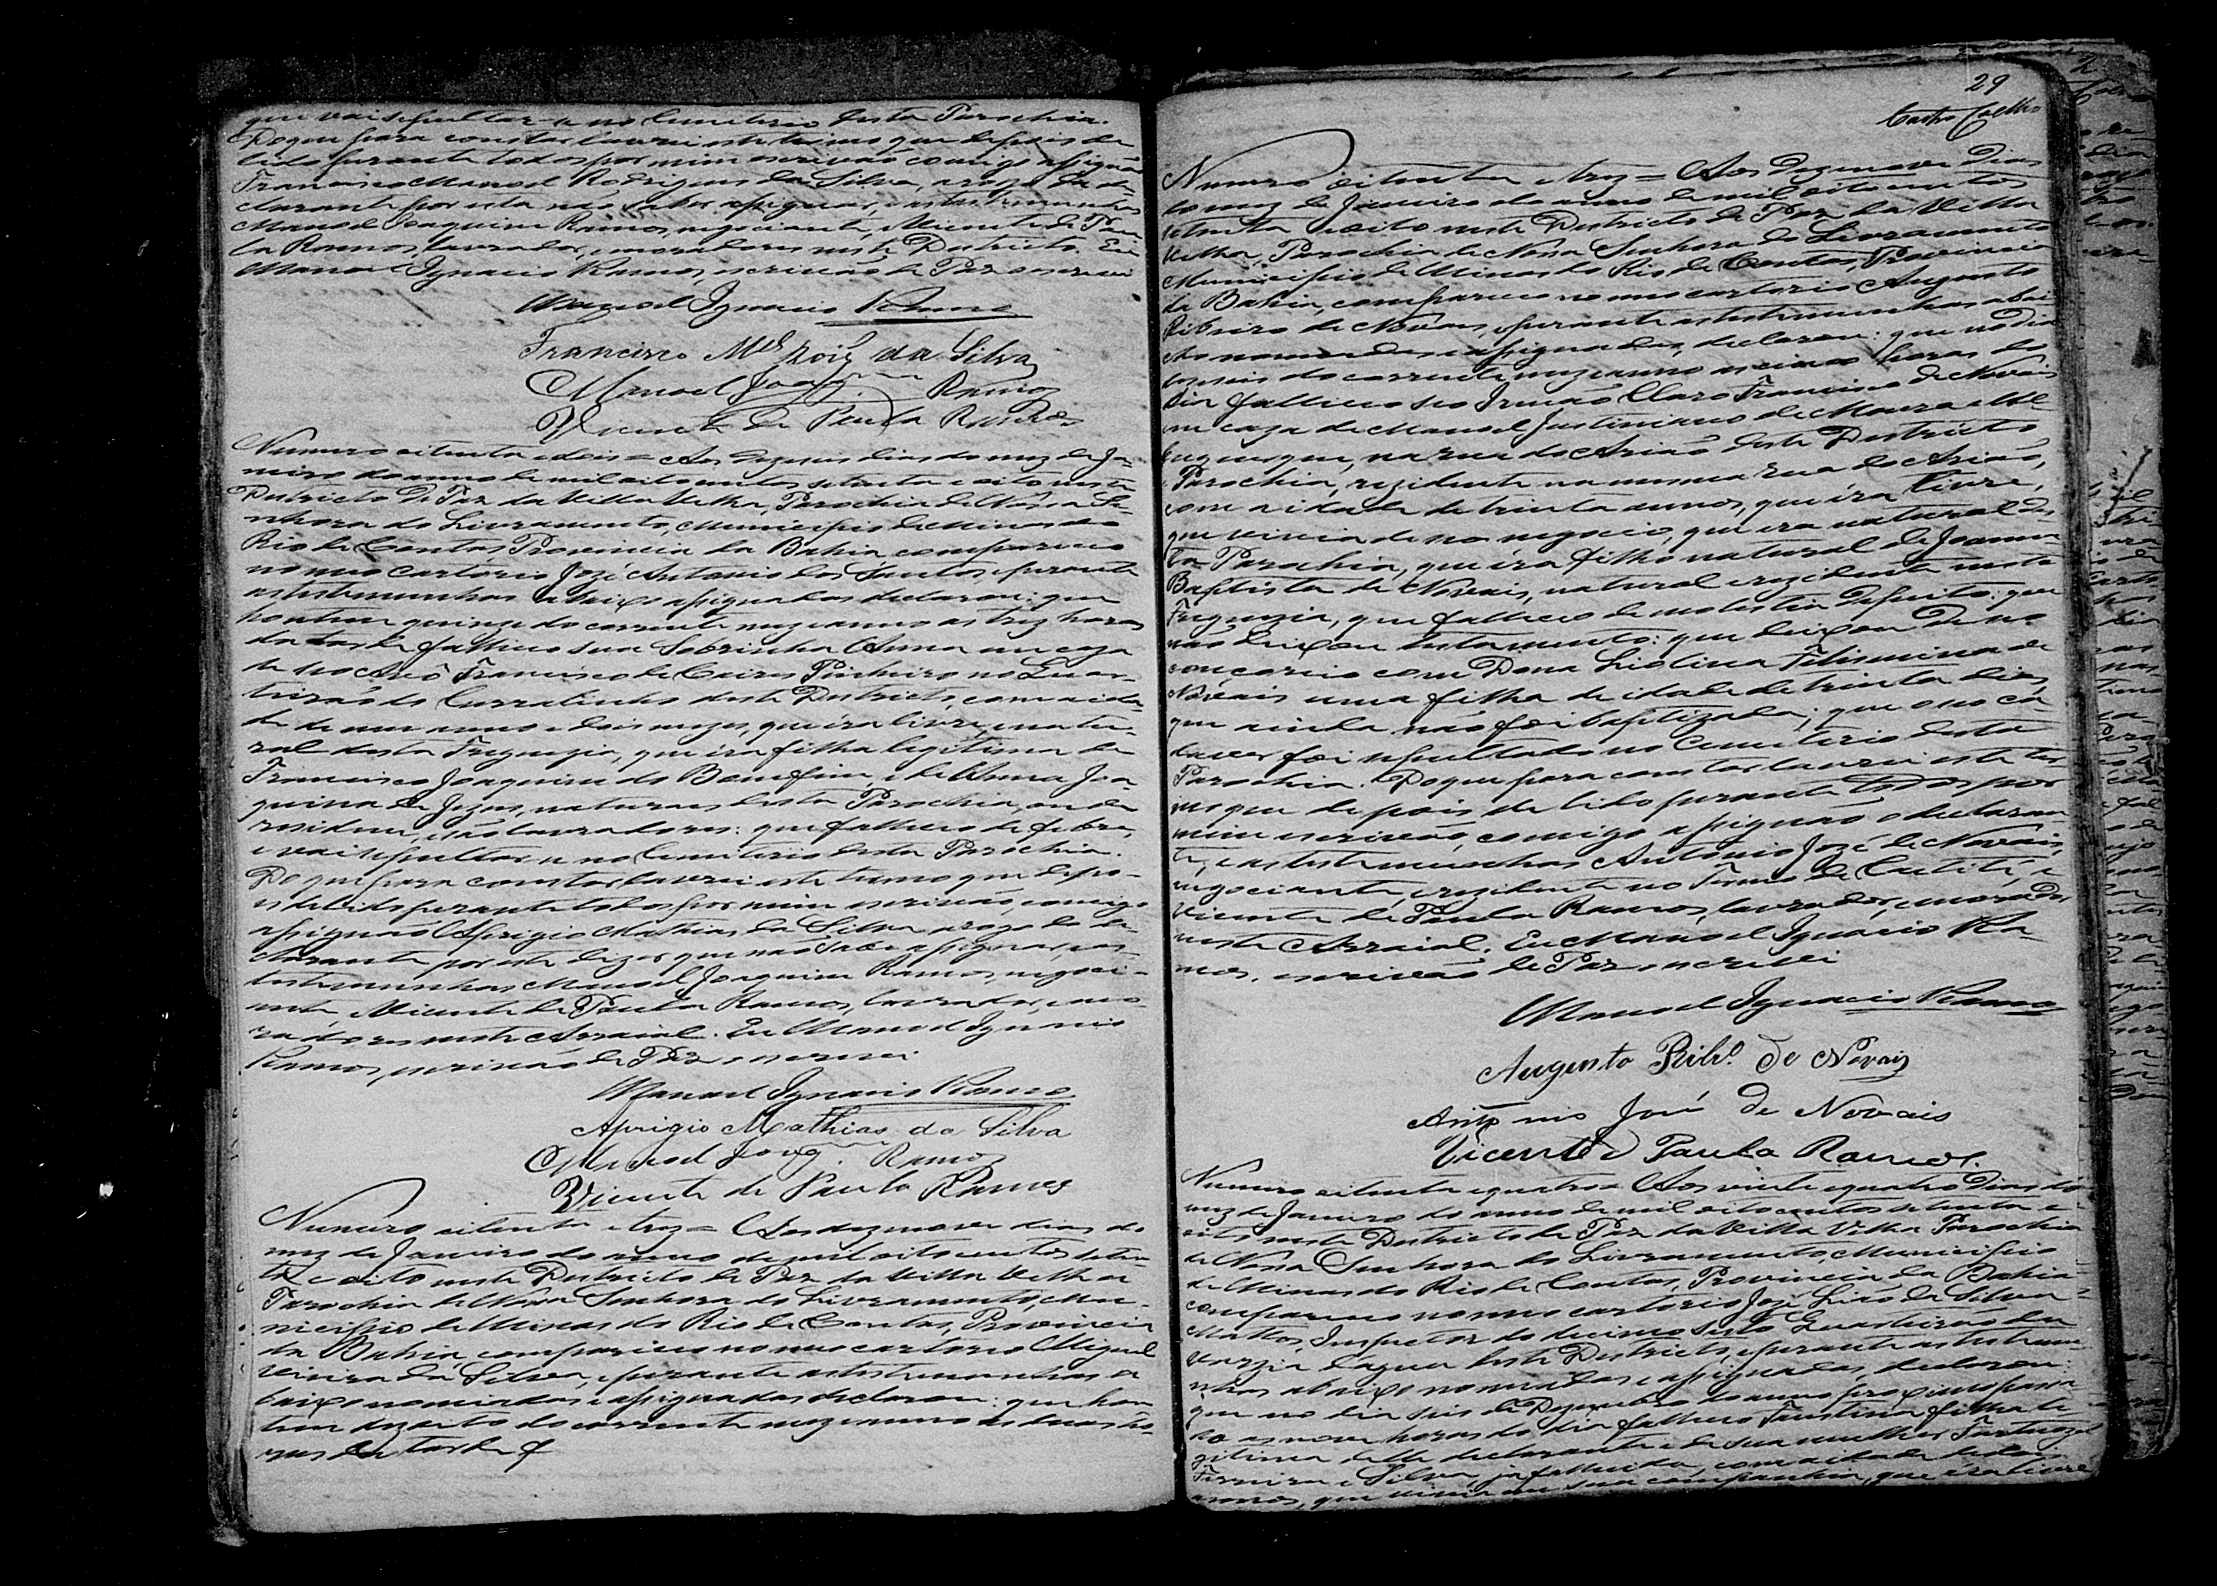 que vai sepultar-se no Cemeterio desta Parochia.
Do que para constar lavrei este termo que depois de
lido perante todos por mim escrivão comigo assignão
Francisco Manoel Rodrigues da Silva, a rogo da de-
clarante por esta não saber assignar, e as testemunhas
Manoel Joaquim Ramos, negociante, Vicente de Pau-
la Ramos, lavrador, moradores neste Districto. Eu
Manoel Ignacio Ramos, escrivão de Paz o escrevi
Manoel Ignacio Ramos
Francisco Mel Roiz da Silva
Manoel Joaqm Ramos
Vicente de Paula Ramos
Numero oitenta e dois = Aos dezeseis dias do mez de Ja-
neiro do anno de mil oito centos setenta e oito neste
Districto de Paz da Villa Velha, Parochia de Nossa Se-
nhora do Livramento, Municipio de Minas do
Rio de Contas Provincia da Bahia compareceo
no meo Cartorio José Antonio dos Santos e perante
as testemunhas abaixo assignadas declarou: que
hontem quinze do corrente mez e anno as trez horas
da tarde falleceo sua Sobrinha Anna em caza
de seo Avô Francisco de Caires Pinheiro no Quar-
teirão do Curralinho deste Districto, com a ida-
de de um anno e dois mezes, que éra livre, e natu-
ral desta Freguezia, que éra filha legitima de
Francisco Joaquim do Bomfim e de Anna Joa-
quina de Jezus, naturaes desta Parochia, onde
residem, e são lavradores: que falleceo de febre,
e vai sepultar-se no Cemeterio desta Parochia.
Do que para constar lavrei este termo que depo-
is de lido perante todos por mim escrivão, comigo
assignão Aprigio Mathias da Silva a rogo do de-
clarante por este dizer que não sabe assignar, e as
testemunhas Manoel Joaquim Ramos, negoci-
ante Vicente de Paula Ramos, lavrador, mo-
radores neste Arraial. Eu Manoel Ignacio
Ramos, escrivão de Paz o escrevi
Manoel Ignacio Ramos
Aprigio Mathias da Silva
Manoel Joaqm Ramos
Vicente de Paula Ramos
Numero oitenta e trez = Aos dezenove dias do
mez de Janeiro do anno de mil oito centos seten-
ta e oito neste Districto de Paz da Villa Velha
Parochia de Nossa Senhora do Livramento, Mu-
nicipio de Minas do Rio de Contas, Provincia
da Bahia, compareceo no meo cartorio Miguel
Vieira da Silva, e perante as testemunhas a
baixo nomiadas e assignadas declarou: que hon
tem dezoito do corrente mez e anno as duas ho-
ras da tarde f
29
Castro Coelho
Numero oitenta e trez = Aos dezenove dias
do mez de Janeiro do anno de mil oito centos
setenta e oito neste Districto de Paz da Villa
Velha, Parochia de Nossa Senhora do Livramento
Municipio de Minas do Rio de Contas, Provincia
da Bahia, compareceo no meo cartorio Augusto
Ribeiro de Novais, e perante as testemunhas abai
xo nomeadas e assignadas, declarou: que no dia
dezeseis do corrente mez e anno as cinco horas do
dia falleceo seo Irmão Claro Francisco de Novais
em caza de Manoel Justiniano de Moura e Al-
buquerque, na rua do Arião deste Districto
e Parochia, rezidente na mesma rua do Arião,
com a idade de trinta annos, que éra livre,
que vivia de seo negocio, que era natural des-
ta Parochia, que éra filho natural de Joanna
Baptista de Novais, natural e rezidente nesta
Freguezia, que falleceo de molestia do peito: que
não deixou testamento: que deixou de seo
conçorcio com Dona Filismina de
Novais uma filha de idade de trinta dias
que ainda não foi baptizada; que o seo ca
daver foi sepultado no Cemeterio desta
Parochia. Do que para constar lavrei este ter
mo que depois de lido perante todos por
mim escrivão, comigo assignão o declaran
te, e as testemunhas Antonio José de Novais,
negociante, e rezidente no Termo de Caetité, e
Vicente de Paula Ramos, lavrador, morador
neste Arraial. Eu Manoel Ignacio Ra-
mos, escrivão de Paz o escrevi
Manoel Ignacio Ramos
Augusto Ribro de Novais
Antonio José de Novais
Vicente de Paula Ramos.
Numero oitenta e quatro = Aos vinte e quatro dias do
mez de Janeiro do anno de mil oito centos setenta e
oito neste Districto de Paz da Villa Velha Parochia
de Nossa Senhora do Livramento, Municipio
de Minas do Rio de Contas, Provincia da Bahia
compareceo no meo cartorio José Lino da Silva
Mattos, Inspector do decimo sexto Quarteirão da
Varzia d'agua deste Districto, e perante as testemu-
nhas abaixo nomeadas e assignadas, declarou:
que no dia seis de Dezembro do anno proximo passa-
do as nove horas do dia falleceo Faustina filha le
gitima delle declarante e de sua mulher
Ferreira e Silva, ja fallecida, com a idade de
annos, que vivia em sua companhia, que éra livre